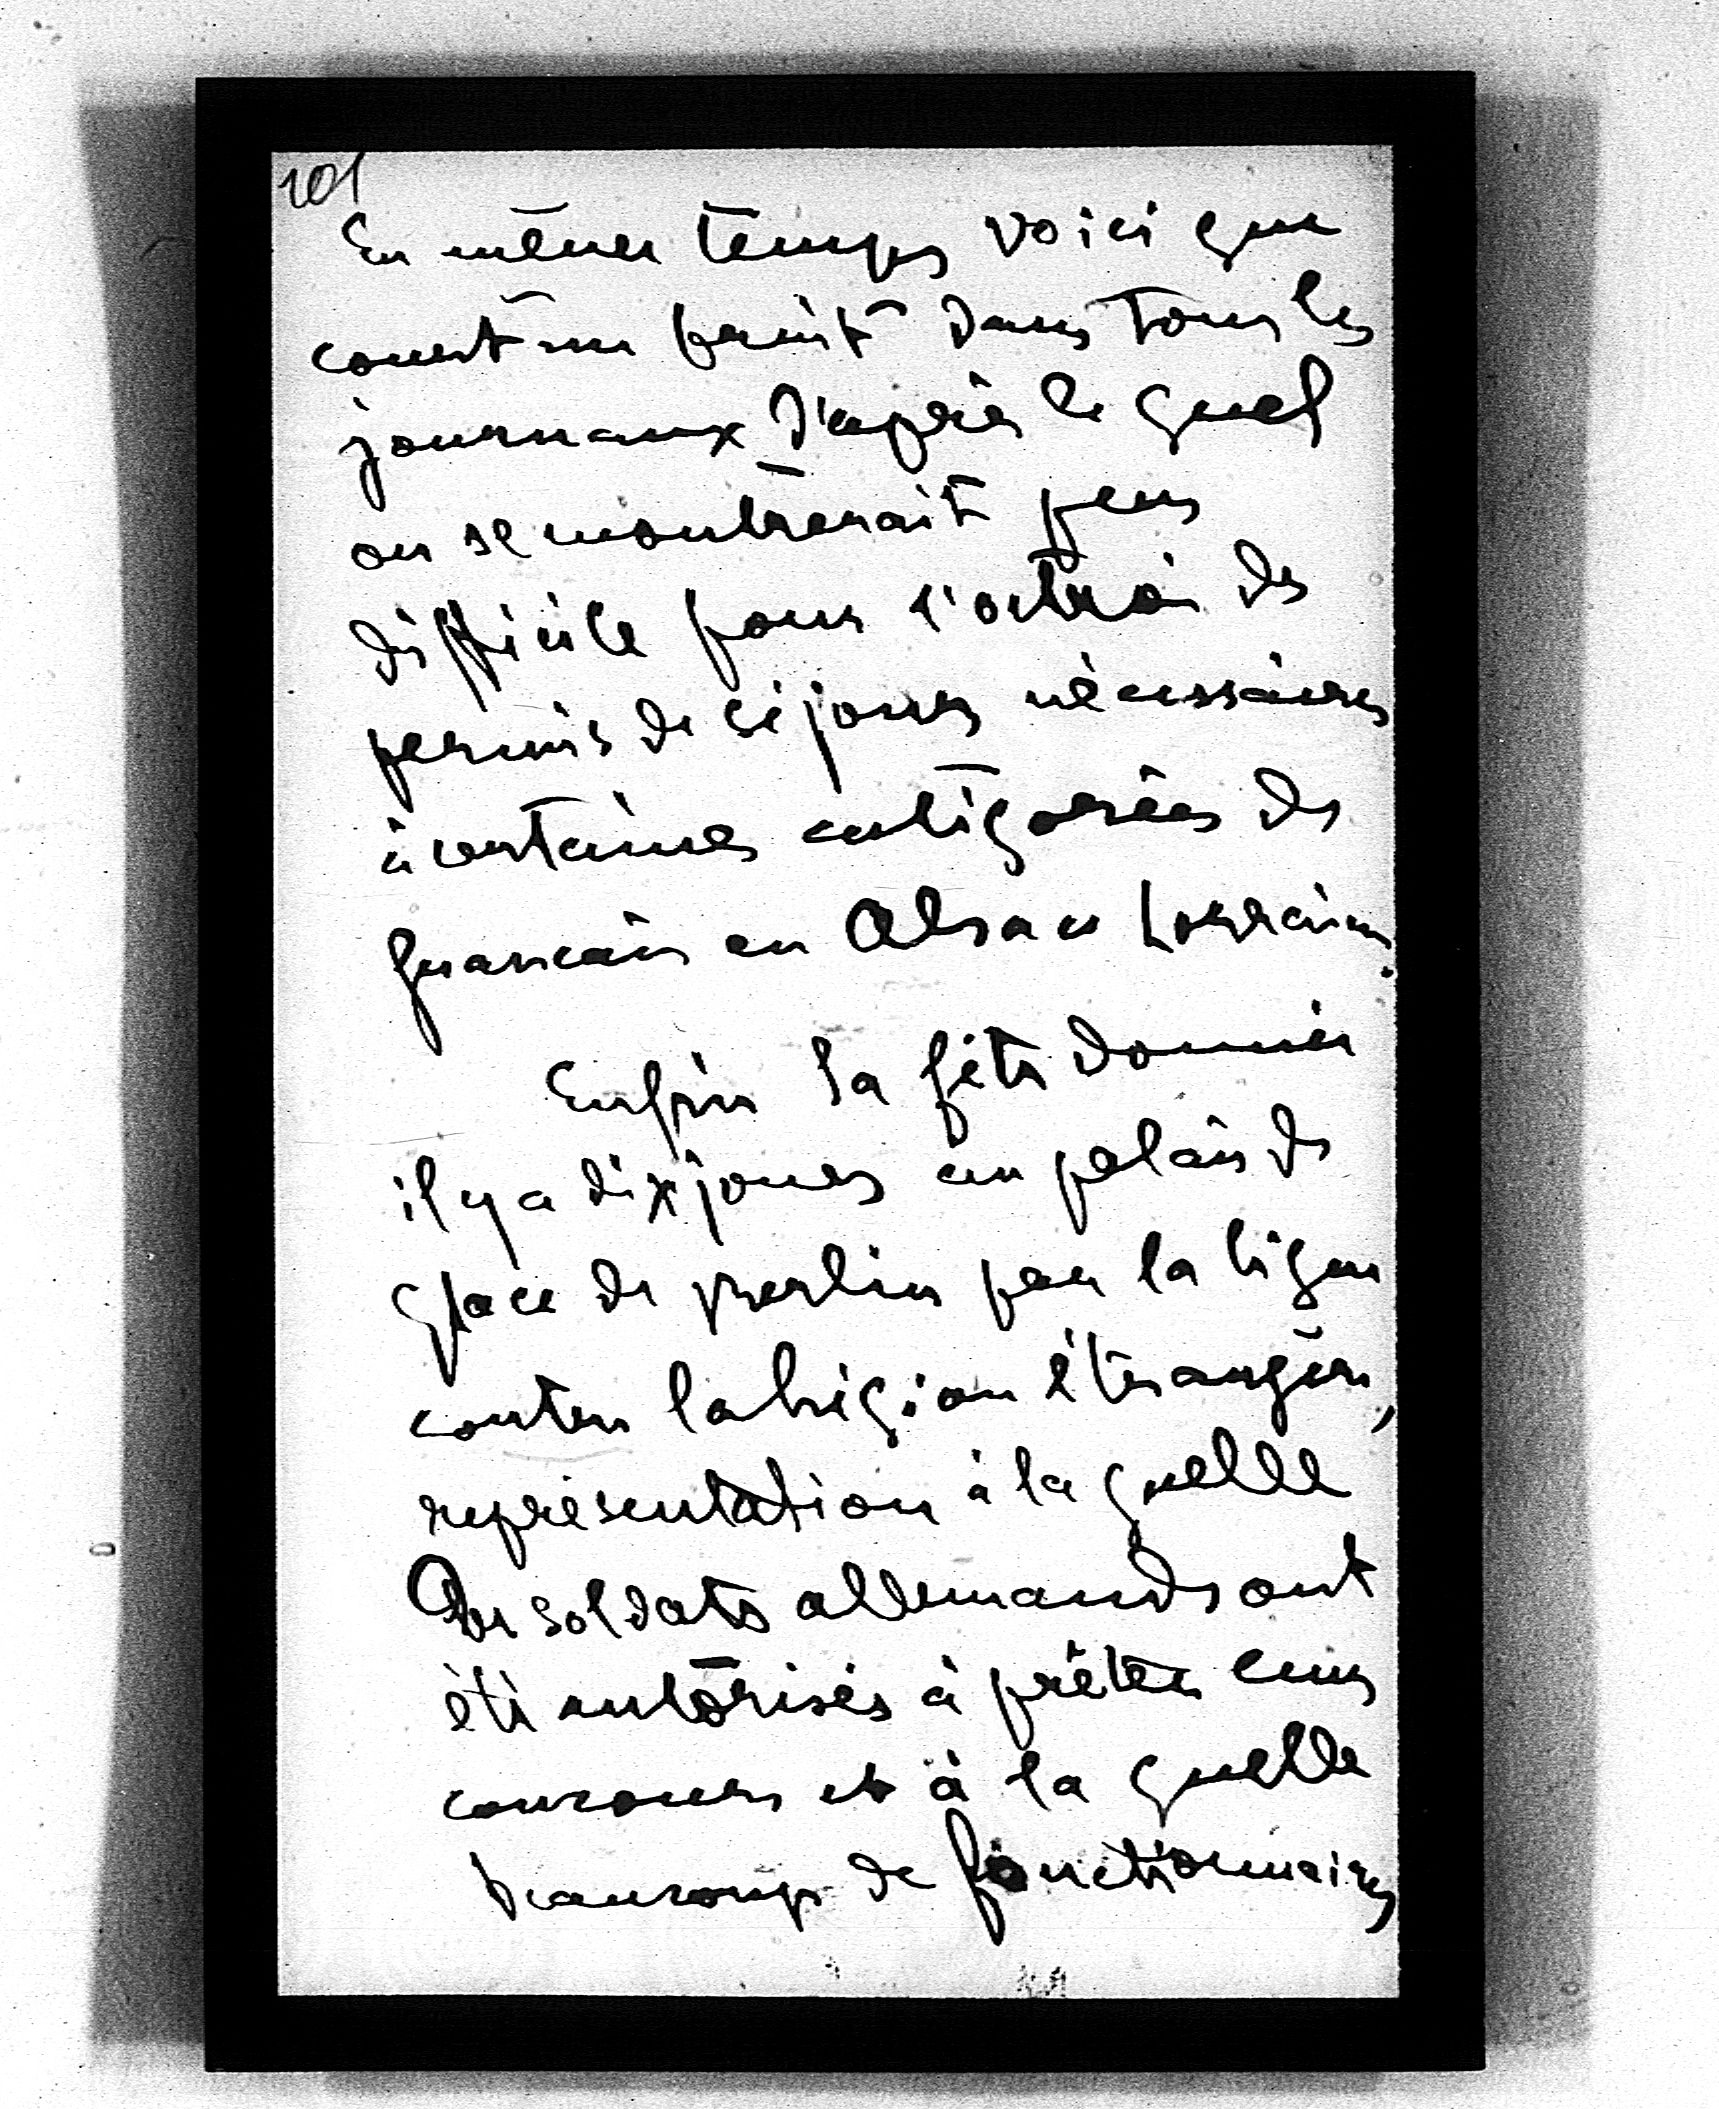 101
En même temps voici que
court un bruit dans tous les
journaux d'après le quel
on se montrerait peu
difficile pour l'octroi des
permis de séjours nécessaires
à certaines catégories de
français en Alsace Lorraine.
Enfin la fête donnée
il y a dix jours au palais de
glace de Berlin par la ligue
contre la légion étrangère,
représentation à la quelle
des soldats allemands ont
été autorisés à prêter leur
concours et à la quelle
beaucoup de fonctionnaires